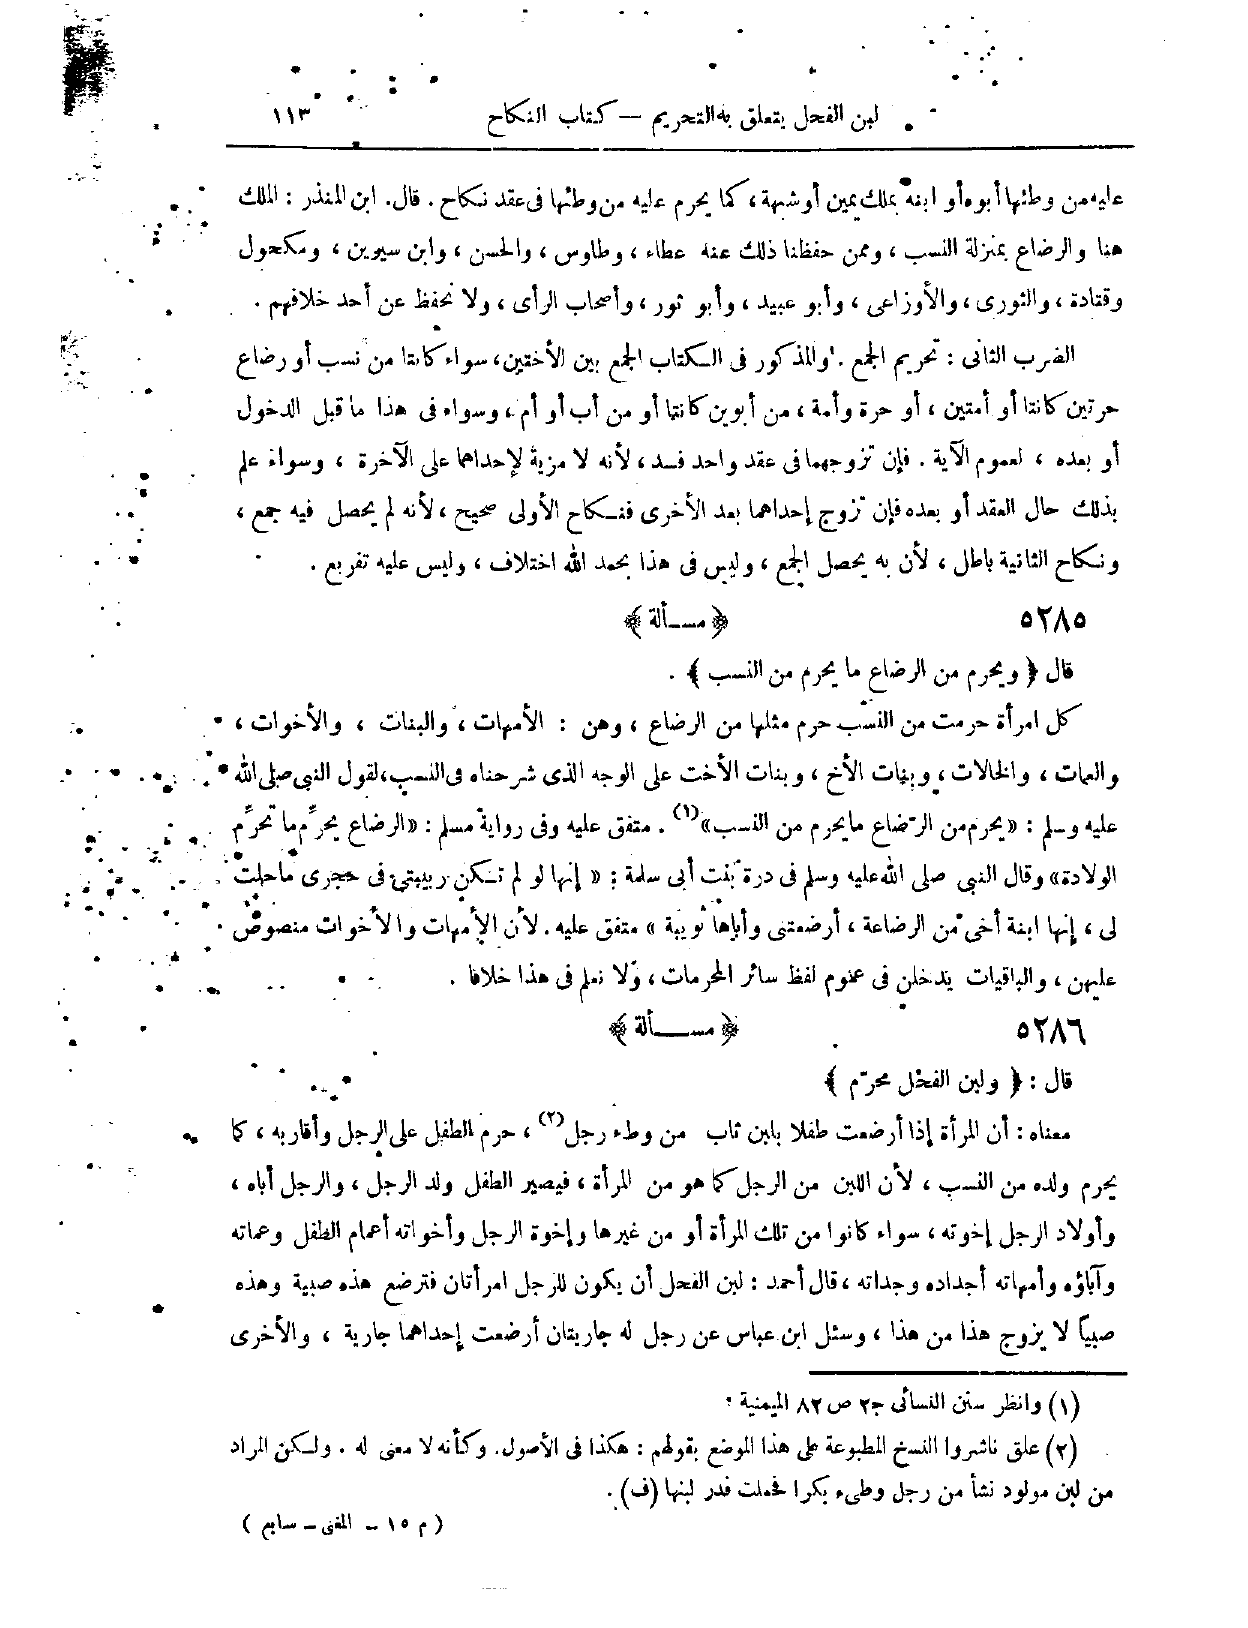 لبن الفحل يتعلق به التحريم — كتاب النكاح ١١٣
عليه من وطئها أبوه أو ابنه بملك يمين أو شبهة، كما يحرم عليه من وطئها فى عقد نكاح. قال. ابن المنذر : الملك
هنا والرضاع بمنزلة النسب ، وممن حفظنا ذلك عنه عطاء ، وطاوس ، والحسن ، وابن سيرين ، ومكحول
وقتادة ، والثورى ، والأوزاعى ، وأبو عبيد ، وأبو ثور ، وأصحاب الرأى ، ولا نحفظ عن أحد خلافهم .
الضرب الثانى : تحريم الجمع . والمذكور فى الكتاب الجمع بين الأختين، سواء كانتا من نسب أو رضاع
حرتين كانتا أو أمتين ، أو حرة وأمة ، من أبوين كانتا أو من أب أو أم ، وسواء فى هذا ما قبل الدخول
أو بعده ، لعموم الآية . فإن تزوجهما فى عقد واحد فسد ، لأنه لا مزية لإحداهما على الآخرة ، وسواء علم
بذلك حال العقد أو بعده فإن تزوج إحداهما بعد الأخرى فنكاح الأولى صحيح ، لأنه لم يحصل فيه جمع ،
ونكاح الثانية باطل ، لأن به يحصل الجمع ، وليس فى هذا بحمد الله اختلاف ، وليس عليه تفريع .
٥٢٨٥ ﴿ مسألة ﴾
قال ﴿ ويحرم من الرضاع ما يحرم من النسب ﴾ .
كل امرأة حرمت من النسب حرم مثلها من الرضاع ، وهن : الأمهات ، والبنات ، والأخوات ،
والعمات ، والخالات ، وبنات الأخ ، وبنات الأخت على الوجه الذى شرحناه فى النسب، لقول النبى صلى الله
عليه وسلم : «يحرم من الرضاع ما يحرم من النسب»(١) . متفق عليه وفى رواية مسلم : «الرضاع يحرِّم ما تحرِّم
الولادة» وقال النبى صلى الله عليه وسلم فى درة بنت أبى سلمة : « إنها لو لم تكن ربيبتى فى حجرى ما حلت
لى ، إنها ابنة أخى من الرضاعة ، أرضعتنى وأباها ثويبة » متفق عليه . لأن الأمهات والأخوات منصوص
عليهن ، والباقيات يدخلن فى عموم لفظ سائر المحرمات ، ولا نعلم فى هذا خلافا .
٥٢٨٦ ﴿ مســألة ﴾
قال : ﴿ ولبن الفحل محرّم ﴾
معناه : أن المرأة إذا أرضعت طفلا بلبن ثاب من وطء رجل(٢) ، حرم الطفل على الرجل وأقاربه ، كما
يحرم ولده من النسب ، لأن اللبن من الرجل كما هو من المرأة ، فيصير الطفل ولد الرجل ، والرجل أباه ،
وأولاد الرجل إخوته ، سواء كانوا من تلك المرأة أو من غيرها وإخوة الرجل وأخواته أعمام الطفل وعماته
وآباؤه وأمهاته أجداده وجداته ، قال أحمد : لبن الفحل أن يكون للرجل امرأتان فترضع هذه صبية وهذه
صبيًّا لا يزوج هذا من هذا ، وسئل ابن عباس عن رجل له جاريتان أرضعت إحداهما جارية ، والأخرى
(١) وانظر سنن النسائى ج٢ ص ٨٢ الميمنية .
(٢) علق ناشروا النسخ المطبوعة على هذا الموضع بقولهم : هكذا فى الأصول. وكأنه لا معنى له . ولكن المراد
من لبن مولود نشأ من رجل وطىء بكرا فحملت فدر لبنها (ف) .
( م ١٥ - المغنى - سابع )